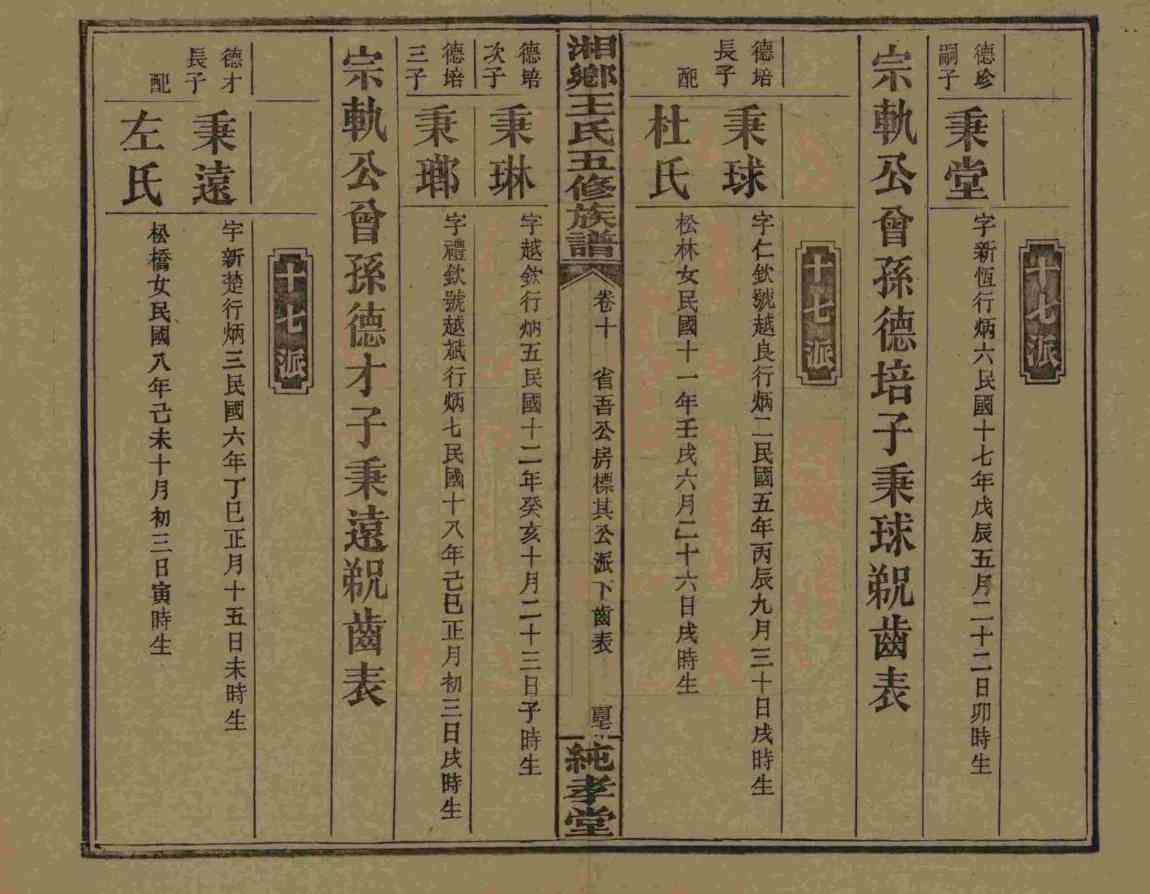 十七派
德珍
嗣子
秉堂
字新恆行炳六民國十七年戊辰五月二十二日卯時生
宗軌公曾孫德培子秉球覜齒表
十七派
德培
長子
秉球
字仁欽號越良行炳二民國五年丙辰九月三十日戌時生
配
杜氏
松林女民國十一年壬戌六月二十六日戌時生
湘鄉王氏五修族譜
卷十
省吾公房標其公派下齒表
純孝堂
德培
次子
秉琳
字越欽行炳五民國十二年癸亥十月二十三日子時生
德培
三子
秉瑯
字禮欽號越斌行炳七民國十八年己巳正月初三日戌時生
宗軌公曾孫德才子秉遠覜齒表
十七派
德才
長子
秉遠
字新楚行炳三民國六年丁巳正月十五日未時生
配
左氏
松橋女民國八年己未十月初三日寅時生